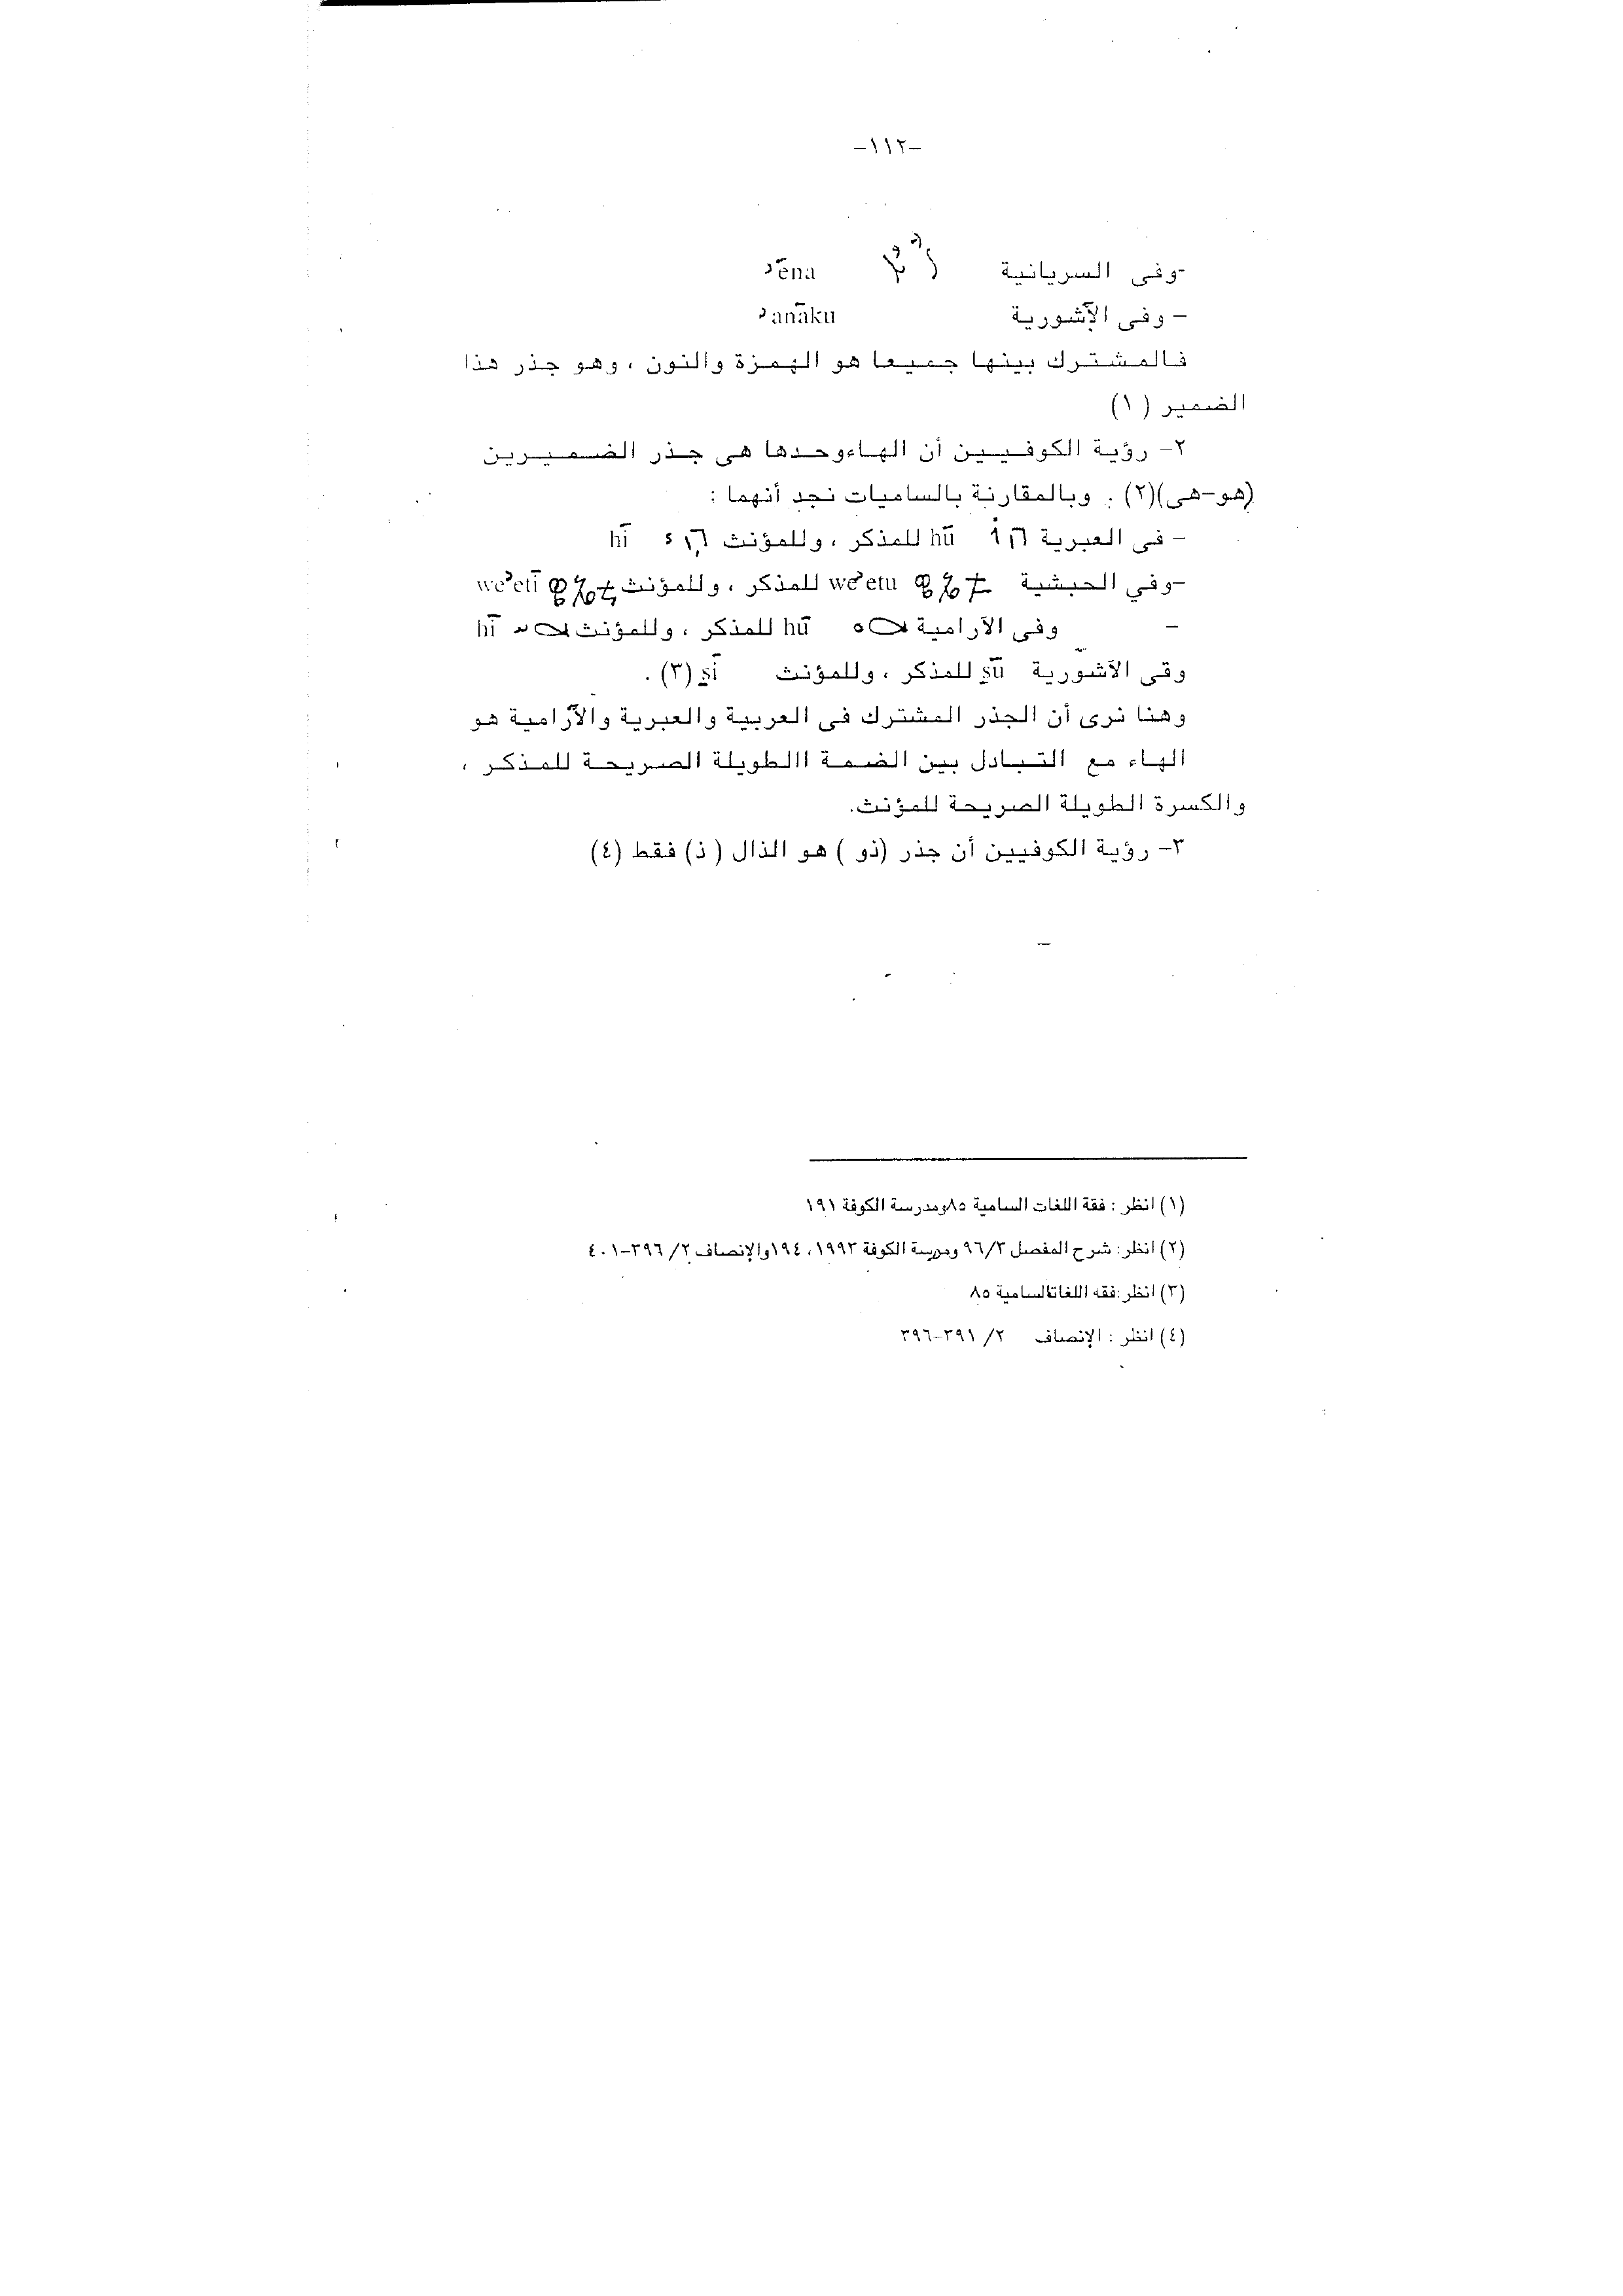 -١١٢-
-وفى السريانية ʾēna
- وفى الآشورية ʾanāku
فالمشترك بينها جميعا هو الهمزة والنون ، وهو جذر هذا
الضمير (١)
٢- رؤية الكوفيين أن الهاءوحدها هى جذر الضميرين
(هو-هى)(٢) . وبالمقارنة بالساميات نجد أنهما :
- فى العبرية hū للمذكر ، وللمؤنث hī
-وفي الحبشية weʾetu للمذكر ، وللمؤنث weʾetī
- وفى الآرامية hū للمذكر ، وللمؤنث hī
وقى الآشورية šū للمذكر ، وللمؤنث šī (٣) .
وهنا نرى أن الجذر المشترك فى العربية والعبرية والآرامية هو
الهاء مع التبادل بين الضمة االطويلة الصريحة للمذكر ،
والكسرة الطويلة الصريحة للمؤنث.
٣- رؤية الكوفيين أن جذر (ذو ) هو الذال ( ذ) فقط (٤)
(١) انظر : فقة اللغات السامية ٨٥ومدرسة الكوفة ١٩١
(٢) انظر: شرح المفصل ٩٦/٣ ومدرسة الكوفة ١٩٩٣، ١٩٤والإنصاف ٢/ ٣٩٦-٤٠١
(٣) انظر:فقه اللغاتالسامية ٨٥
(٤) انظر : الإنصاف ٢/ ٣٩١-٣٩٦